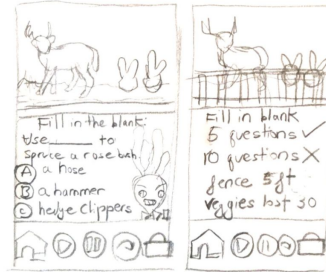 Fill in the blank:
Use _____ to
spruce a rose bush.
A a hose
B a hammer
C hedge clippers
Fill in blank
5 questions ✓
10 questions X
fence 5 ft
veggies lost 30